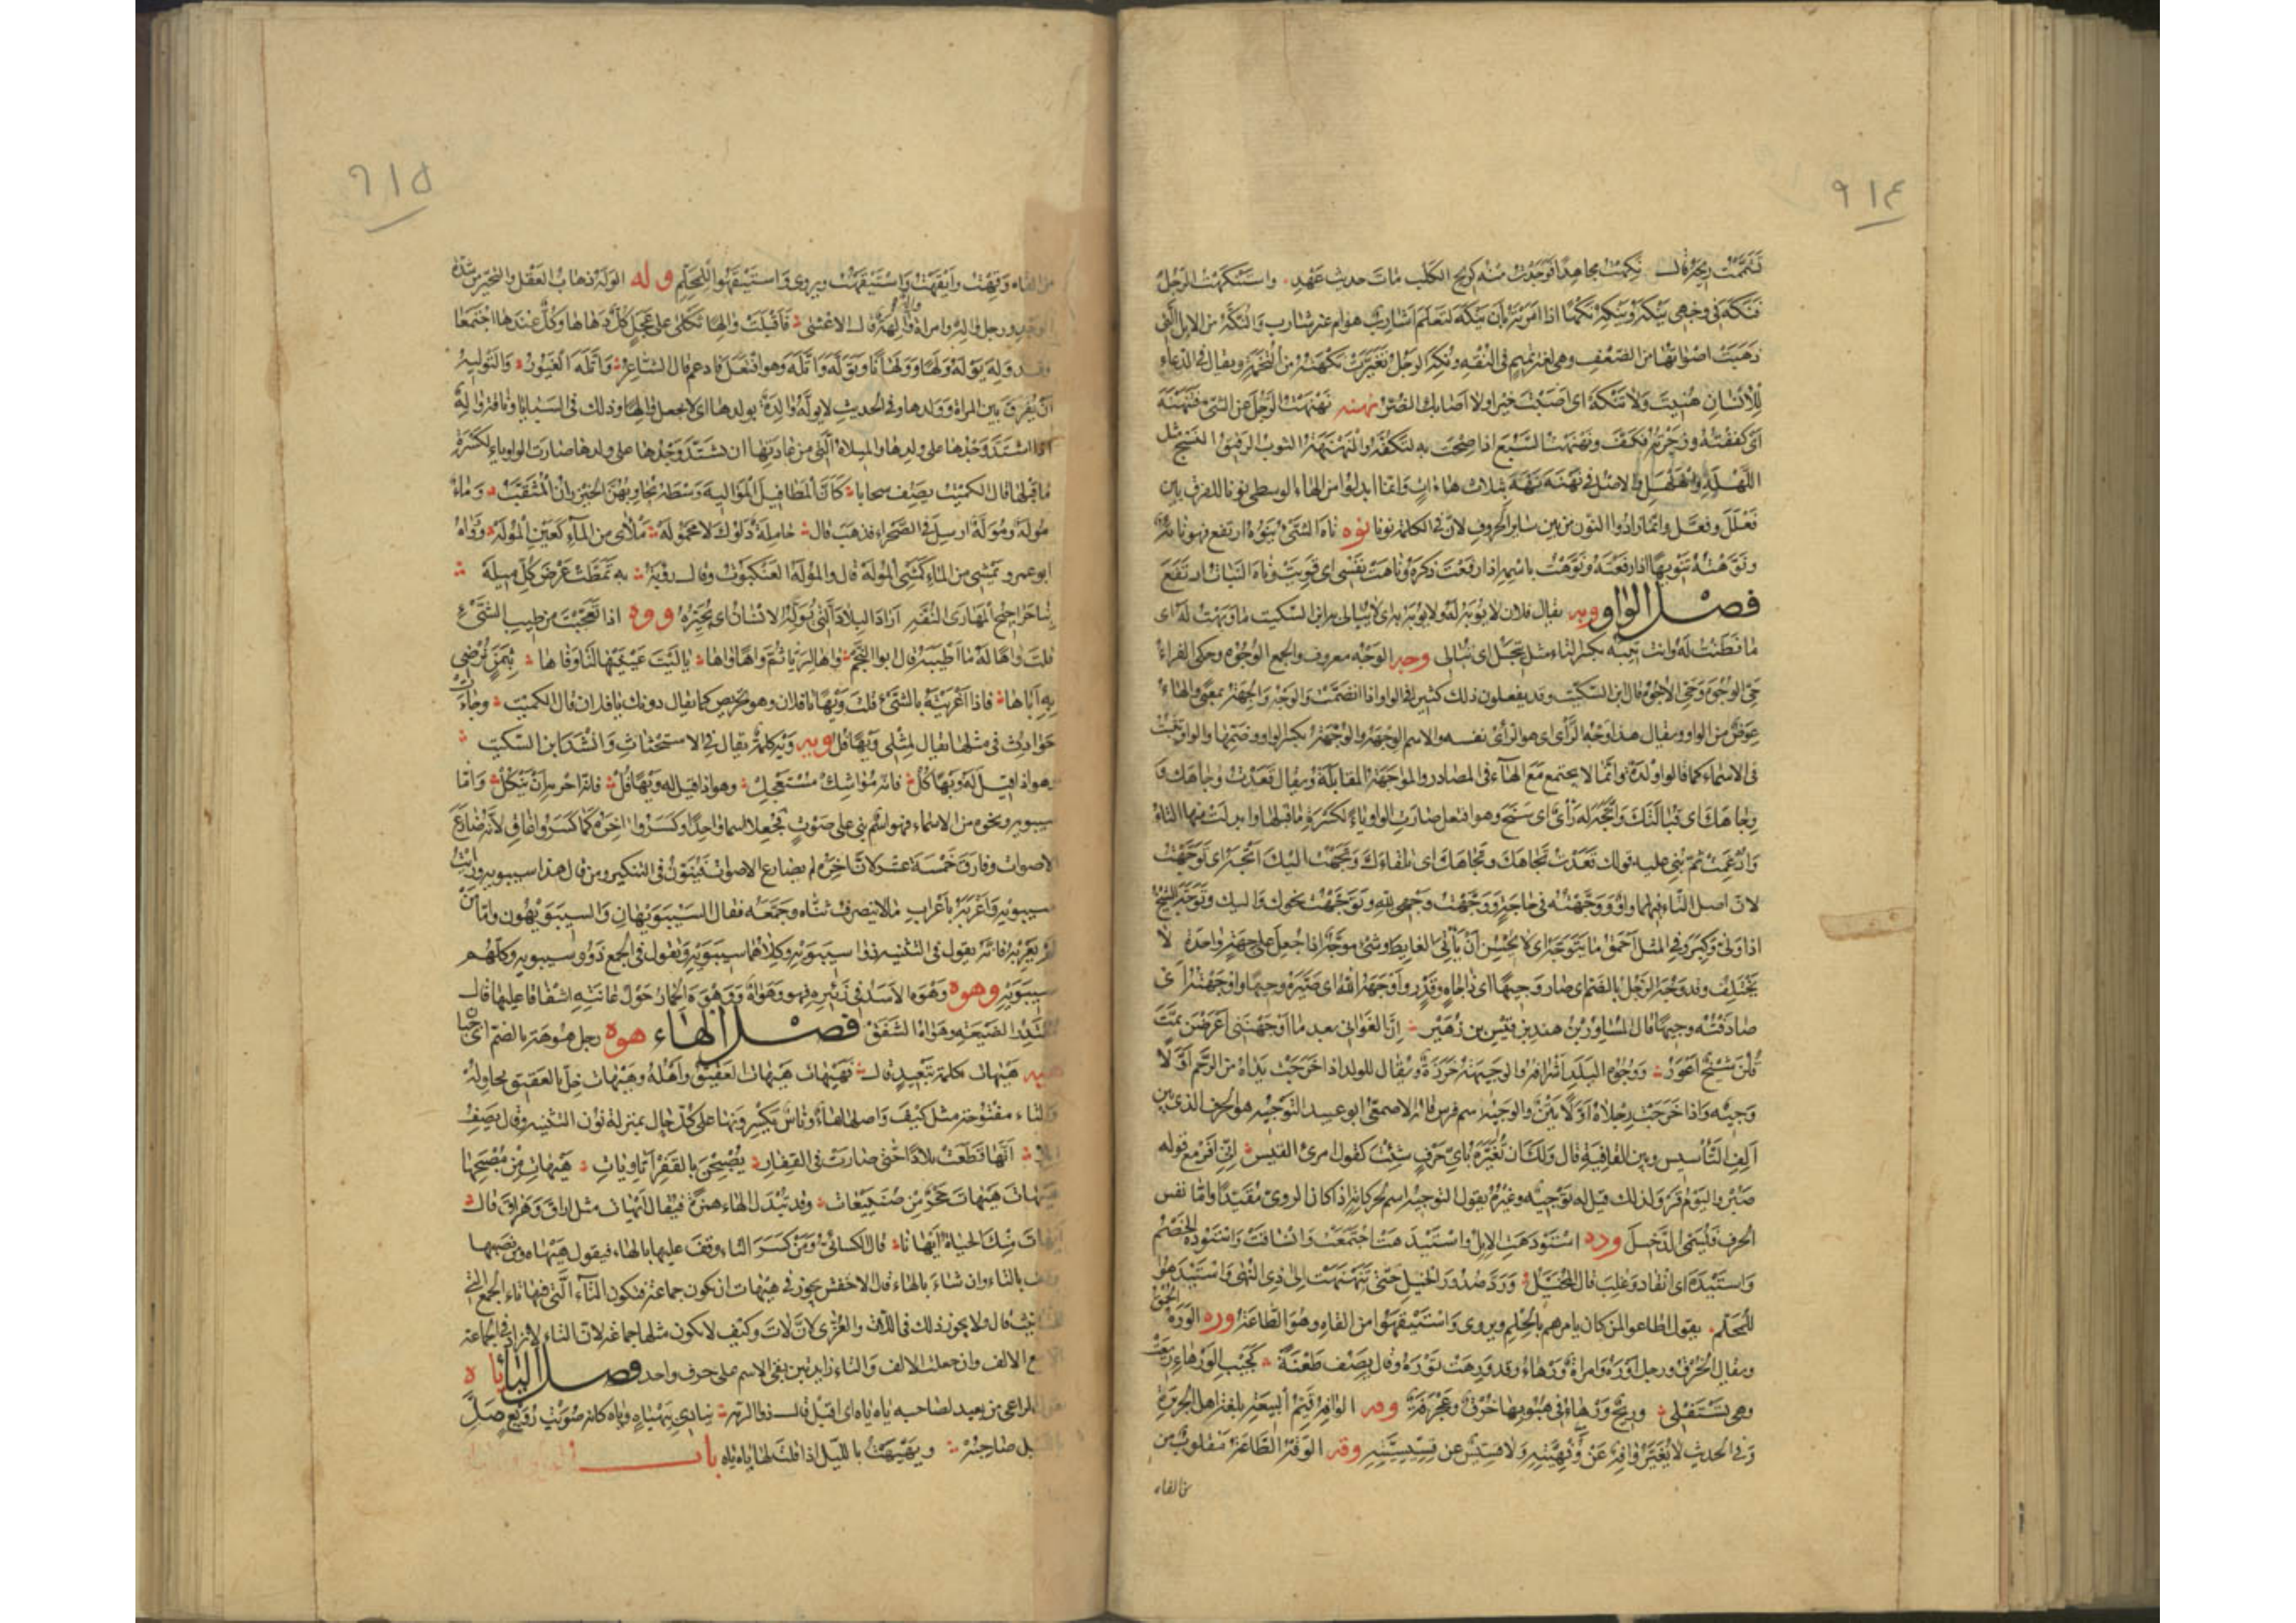 ٩١٤
تشممت ريحه قال نكهت مجاهدا فوجدت منه كريح الكلب مات حديث عهد واستنكهت الرجل
فنكه في وجهي ينكه وينكه نكها اذا امرته بأن ينكه لتعلم اشارب هو ام غير شارب والنكه من الابل التي
ذهبت اصواتها من الضعف وهي لغة تميم في النقه ونكه الرجل تغيرت نكهته من التخمة ويقال في الدعاء
للانسان هنيت ولا تنكه اي اصبت خيرا ولا اصابك الضر نهنه نهنهت الرجل عن الشيء فتنهنه
اي كففته وزجرته فكف ونهنهت السبع اذا صحت به لتكفه والنهنه الثوب الرقيق النسج مثل
اللهله والهلهل والاصل في نهنه نههه بثلاث هاءات وانما ابدلوا من الهاء الوسطى نونا للفرق بين
فعلل وفعل وانما زادوا النون من بين سائر الحروف لان في الكلمة نونا نوه ناه الشيء ينوه ارتفع فهو نائه
ونوهته تنويها اذا رفعته ونوهت باسمه اذا رفعت ذكره وناهت نفسي اي قويت وناه النبات ارتفع
فصل الواو وبه يقال فلان لا يوبه له ولا يوبه به اي لا يبالى به ابن السكيت ما وبهت له اي
ما فطنت له وانت تيبه بكسر التاء مثل تيجل اي تبالي وجه الوجه معروف والجمع الوجوه وحكى الفراء
حي الوجوه وحي الاجوه قال ابن السكيت وقد يفعلون ذلك كثيرا في الواو اذا انضمت والوجه والجهة بمعنى والهاء
عوض من الواو ويقال هذا وجه الرأي اي هو الرأي نفسه والاسم الوجهة والوجهة بكسر الواو وضمها والواو تثبت
في الاسماء كما قالوا ولدة وانما لا يجتمع مع الهاء في المصادر والمواجهة المقابلة ويقال قعدت وجاهك و
وجاهك اي قبالتك واتجه له رأي اي سنح وهو افتعل صارت الواو ياء لكسرة ما قبلها وابدلت منها التاء
وادغمت ثم بني عليه قولك قعدت تجاهك وتجاهك اي تلقاءك وتجهت اليك اتجه اي توجهت
لان اصل التاء فيهما واو ووجهته في حاجة ووجهت وجهي لله وتوجهت نحوك واليك وتوجه الشيخ
اذا ولى وكبر وفي المثل احمق ما يتوجه اي لا يحسن ان يأتي الغايط وشيء موجه اذا جعل على جهة واحدة لا
يختلف وقد وجه الرجل بالضم اي صار وجيها اي ذا جاه وقدر واوجهه الله اي صيره وجيها واوجهته اي
صادفته وجيها قال المساور بن هند بن قيس بن زهير ان الغواني بعد ما اوجهنني اعرضن ثمت
قلن شيخ اعور ووجوه البلد اشرافه والوجيهة خرزة ويقال للولد اذا خرجت يداه من الرحم اولا
وجيه واذا خرجت رجلاه اولا يتن والوجيه اسم فرس قاله الاصمعي ابو عبيد التوجيه هو الحرف الذي بين
الف التأسيس وبين القافية قال ولك ان تغيره باي حرف شئت كقول امرئ القيس اني افر مع قوله
صبر واليوم قر ولذلك قيل له توجيه وغيره يقول التوجيه اسم لحركاته اذا كان الروي مقيدا واما نفس
الحرف فليسمى الدخيل وده استودهت الابل واستيدهت اجتمعت وانساقت واستوده الخصم
واستيده اي انقاد وغلب قال المخبل ورد صدور الخيل حتى تنهنهت الى ذي النهى واستيدهوا
للمحلم يقول اطاعوا لمن كان يامرهم بالحلم ويروى واستيقهوا من القاه وهو الطاعة وره الوره الحمق
ويقال الخرق ورجل اوره وامراة ورهاء وقد ورهت توره وقال يصف طعنة كجيب الورهاء ريعت
وهي تستفلي وريح ورهاء في هبوبها خرق وعجرفة وفه الوافه قيم البيعة بلغة اهل الجزيرة
وفي الحديث لا يغير وافه عن وفهيته ولا قسيس عن قسيسيته وقه الوقه الطاعة مقلوب من
من القاه
٩١٥
من القاه وقهت وايقهت واستيقهت ويروى واستيقهوا للمحلم وله الوله ذهاب العقل والتحير من شدة
الوجد ورجل واله وامراة واله والهة قال الاعشى فاقبلت والها ثكلى على عجل كل دهاها وكل عندها اجتمعا
وقد وله يوله ولها وولهانا وتوله واتله وهو افتعل فادغم قال الشاعر واتله الغيور والتوليه
ان يفرق بين المراة وولدها وفي الحديث لا توله والدة بولدها اي لا تجعل والها وذلك في السبايا وناقة واله
اذا اشتد وجدها على ولدها والميلاه التي من عادتها ان يشتد وجدها على ولدها صارت الواو ياء لكسرة
ما قبلها قال الكميت يصف سحابا كأن المطافيل المواليه وسطه يجاوبهن الخيزران المثقب وماء
موله وموله ارسل في الصحراء فذهب قال حاملة دلوك لا محموله ملأى من الماء كعين الموله ورواه
ابو عمرو تمشي من الماء كمشي الموله قال والموله العنكبوت وقال رؤبة به تمطت غرض كل ميله
بنا حراجيج المهارى النفه اراد البلاد التي توله الانسان اي تحيره ووه اذا تعجبت من طيب الشيء
قلت واها له ما اطيبه قال ابو النجم واها لريا ثم واها واها يا ليت عينيها لنا وفاها بثمن نرضي
به اباها فاذا اغريته بالشيء قلت ويها يا فلان وهو تحريض كما يقال دونك يا فلان قال الكميت وجاءت
حوادث في مثلها يقال لمثلي ويها فل ويه ويه كلمة يقال في الاستحثاث وانشد ابن السكيت
وهو اذا قيل له ويها كل فانه مواشك مستعجل وهو اذا قيل له ويها فل فانه احر به ان ينكل واما
سيبويه ونحوه من الاسماء فهو اسم بني على صوت فجعلا اسما واحدا وكسروا اخره كما كسروا غاق لانه ضارع
الاصوات وفارق خمسة عشر لان اخره لم يضارع الاصوات فينون في التنكير ومن قال هذا سيبويه ورايت
سيبويه فاعربه باعراب ما لا ينصرف ثناه وجمعه فقال السيبويهان والسيبويهون واما من
لم يعربه فانه يقول في التثنيه ذوا سيبويه وكلاهما سيبويه ويقول في الجمع ذوو سيبويه وكلهم
سيبويه وهوه وهوه الاسد في زئيره فهو وهواه ووهوه الحمار حول عانته اشفاقا عليها قال
مقتدر الضيعة وهواه الشفق فصل الهاء هوه رجل هوهة بالضم اي جبان
هيه هيهات كلمة تبعيد قال فهيهات هيهات العقيق واهله وهيهات خل بالعقيق نحاوله
والتاء مفتوحة مثل كيف واصلها هاء وناس يكسرونها على كل حال بمنزلة نون التثنيه وقال يصف
ابلا انها قطعت بلادا حتى صارت في القفار يصبحن بالقفر اتاويات هيهات من مصبحها
هيهات هيهات حجر من صنيبعات وقد تبدل الهاء همزة فيقال ايهات مثل اراق وهراق قال
ايهات منك الحياة ايهاتا قال الكسائي ومن كسر التاء وقف عليها بالهاء فيقول هيهاه ومن نصبها
وقف بالتاء وان شاء بالهاء قال الاخفش يجوز في هيهات ان يكون جماعة فتكون التاء التي فيها تاء الجمع التي
للتانيث قال ولا يجوز ذلك في اللات والعزى لان لات وكيف لا يكون مثلها جماعة لان التاء لا تزاد في الجماعة
الا مع الالف وان جعلت الالف والتاء زايدتين بقي الاسم على حرف واحد فصل الياء ياه
يقول الراعي من بعيد لصاحبه ياه ياه اي اقبل قال ذو الرمة ينادي بيهياه وياه كانه صويت الرويعي ضل
بالليل صاحبه ويهيهت بالابل اذا قلت لها ياه ياه باب